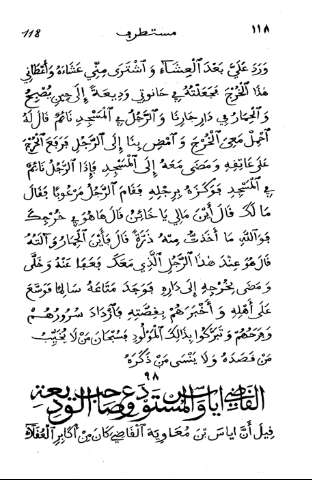 ١١٨ مستطرف 118
ورد علىّ بعد العشاء واشترى منّي عشاءه وأعطاني
هذا الخرج فجعلته في حانوتي وديعة إلى حين يصبح
والحمار في دار جارنا والرجل في المسجد نائم قال له
احمل معي الخرج وامض بنا إلى الرجل فرفع الخرج
على عاتقه ومضى معه إلى المسجد فإذا الرجل نائم
في المسجد فوكزه برجله فقام الرجل مرعوبا فقال
ما لك قال أين مالي يا خائن قال ها هو في خرجك
فوالله ما أخذت منه ذرّة قال فأين الحمار وآلته
قال هو عند هذا الرجل الذي معك فعفا عنه وخلّى
ومضى بخرجه إلى داره فوجد متاعه سالما فوسّع
على أهله وأخبرهم بقصّته فازداد سرورهم
وفرحهم وتبرّكوا بذلك المولود فسبحان من لا يخيّب
من قصده ولا ينسى من ذكره
٩٨
القاضي اياس بن المستودع وصاحب الوديعة
قيل أنّ اياس بن معاوية القاضي كان من أكابر العقلاء